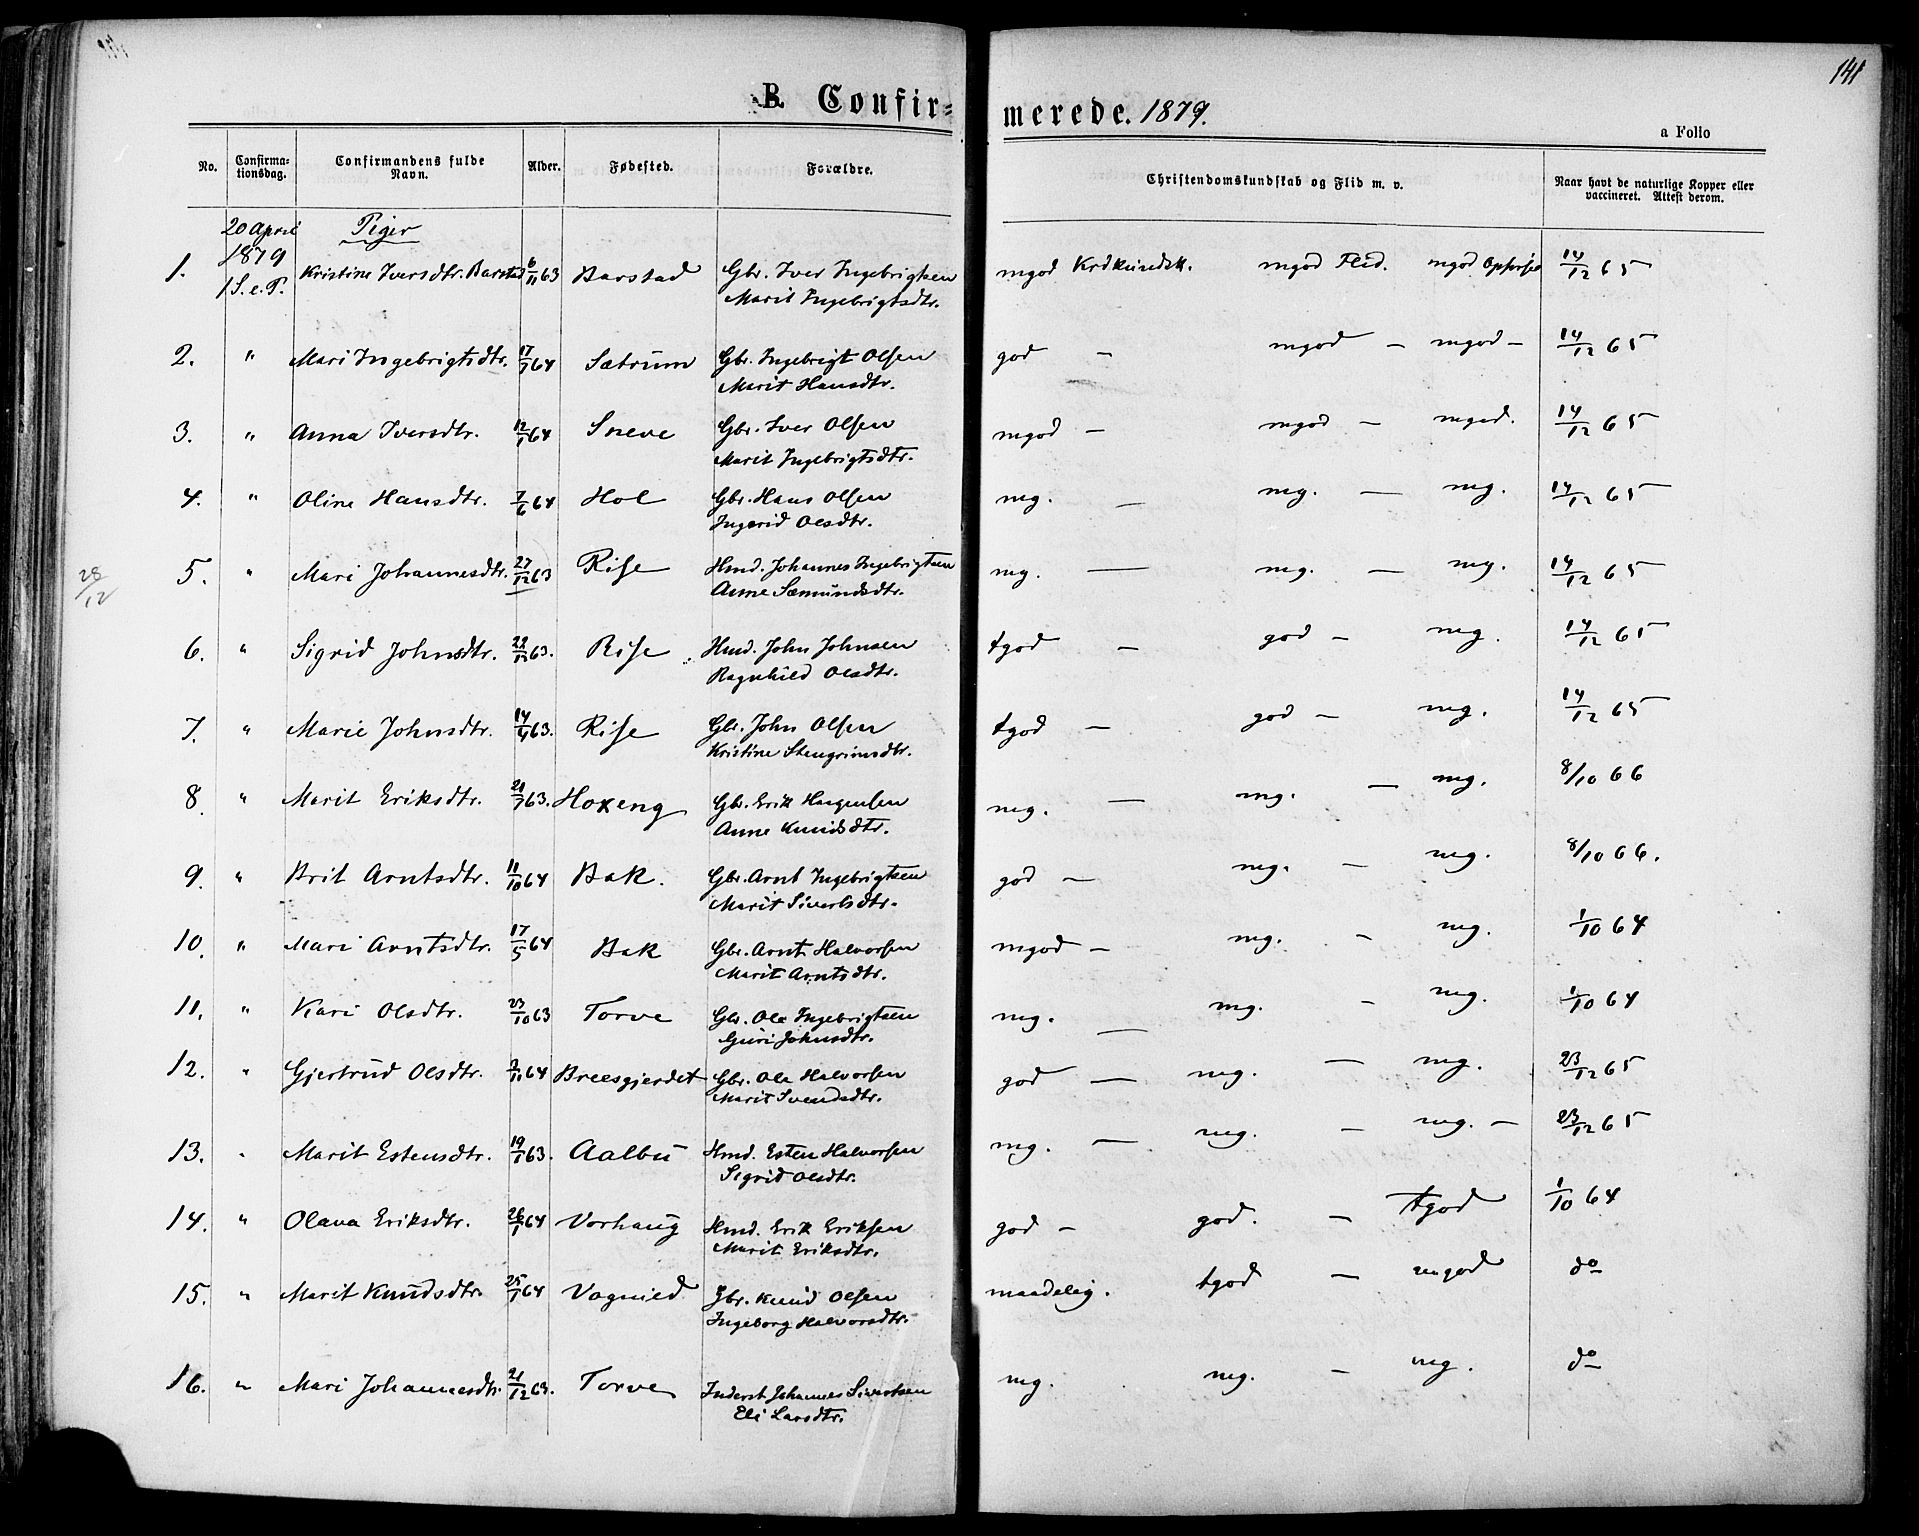 141
B. Confir-merede. 1879.
a Folio
No. Confirma-tionsdag. Confirmandens fulde Navn. Alder. Fødested. Forældre. Christendomskundskab og Flid m. v. Naar havt de naturlige Kopper eller vaccineret. Attest derom.
20 April 1879 1 S. e. P. Piger
1. Kristine Iversdtr. Barstad 6/11 63 Barstad Gbr. Iver Ingebrigtsen mgod Krdkundsk. mgod Flid. mgod Opførsel 14/12 65
Marit Ingebrigtsdtr.
2. " Mari Ingebrigtsdtr. 17/7 64 Sætrum Gbr. Ingebrigt Olsen god - mgod - mgod - 14/12 65
Marit Hansdtr.
3. " Anna Iversdtr. 12/1 64 Sneve Gbr. Iver Olsen mgod - mgod - mgod. 14/12 65
Marit Ingebrigtsdtr.
4. " Oline Hansdtr. 7/6 64 Hol Gbr. Hans Olsen mg. — mg. — mg. 14/12 65
Ingerid Olsdtr.
28/12
5. " Mari Johannesdtr. 27/12 63 Rise Hmd. Johannes Ingebrigtsen mg. — mg. — mg. 14/12 65
Anne Sæmundsdtr.
6. " Sigrid Johnsdtr. 22/12 63. Rise Hmd. John Johnsen tgod - god - mg. 14/12 65
Ragnhild Olsdtr.
7. " Marie Johnsdtr. 14/9 63. Rise Gbr. John Olsen tgod - god - mg. 14/12 65
Kristine Stengrimsdtr.
8. " Marit Eriksdtr. 21/7 63. Hoxeng Gbr. Erik Haagensen mg. — mg. — mg. 8/10 66
Anne Knudsdtr.
9. " Brit Arntsdtr. 11/10 64 Bak. Gbr. Arnt Ingebrigtsen god - mg. - mg. 8/10 66.
Marit Sivertsdtr.
10. " Mari Arntsdtr. 17/5 64 Bak Gbr. Arnt Halvorsen mgod - mg. - mg. 1/10 64
Marit Arntsdtr.
11. " Kari Olsdtr. 23/10 63 Torve Gbr. Ole Ingebrigtsen mg. — mg. - mg. 1/10 64
Guri Johnsdtr.
12. " Gjertrud Olsdtr. 2/10 64 Breesgjerdet Gbr. Ole Halvorsen god — mg. — mg. 23/12 65
Marit Svendsdtr.
13. " Marit Estensdtr. 19/1 63. Aalbu Hmd. Esten Halvorsen mg. — mg. - mg. - 23/12 65
Sigrid Olsdtr.
14. " Olava Eriksdtr. 26/1 64 Vorhaug Hmd. Erik Eriksen god - god. - tgod 1/10 64
Marit Eriksdtr.
15. " Marit Knudsdtr. 25/1 64 Vognild Gbr. Knud Olsen maadelig. tgod - mgod do
Ingeborg Halvorsdtr.
16. " Mari Johannesdtr. 21/12 63. Torve Inderst Johannes Sivertsen mg. mg. - mg. do
Eli Larsdtr.